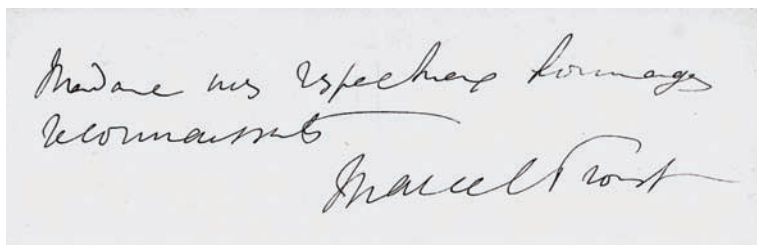 Madame mes respectueux hommages
reconnaissants
Marcel Proust